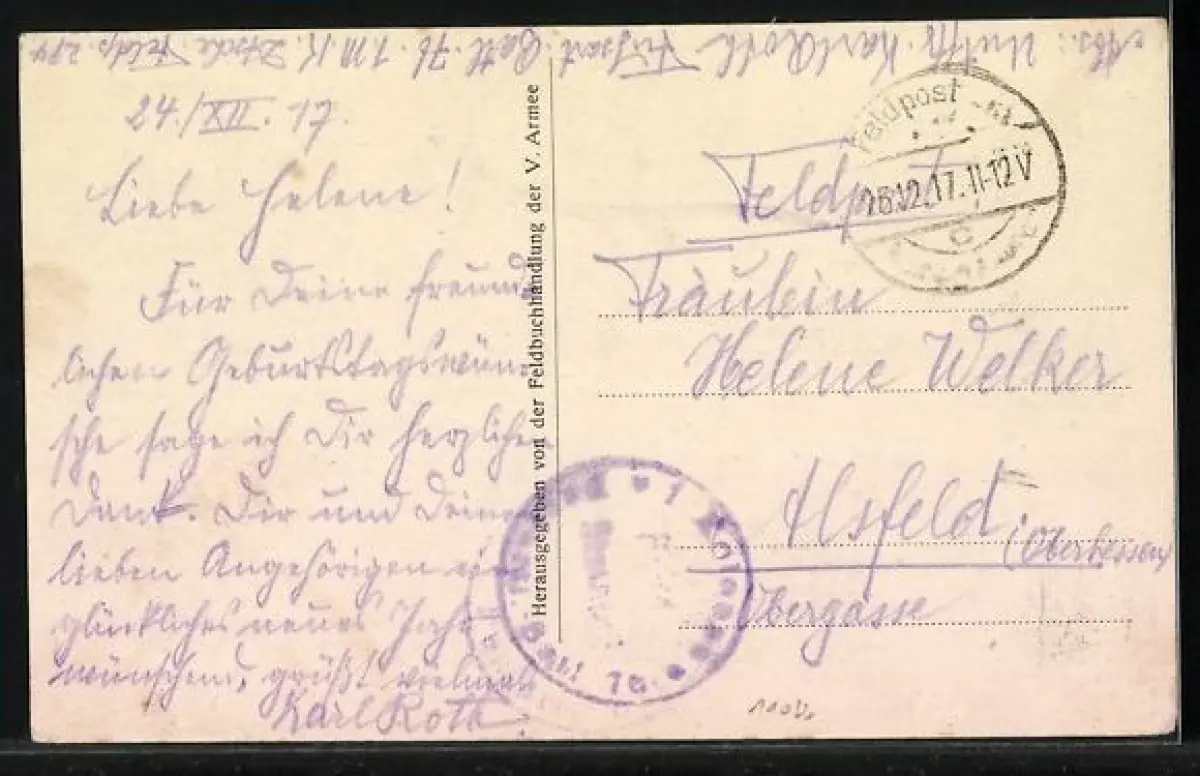 Abs.: Untffz. Karl Roth Fussart. Batl. 76
24./XII. 17.
Liebe Helene!
Für Deine freund-
lichen Geburtstagswün-
sche sage ich Dir herzlichen
Dank. Dir und Deinen
lieben Angehörigen ein
glückliches neues Jahr
wünschend, grüßt vielmals
Karl Roth.
Herausgegeben von der Feldbuchhandlung der V. Armee
Feldpost
26.12.17.11-12V
c
Feldpost
Fräulein
Helene Welker
Alsfeld.
(Oberhessen)
Obergasse